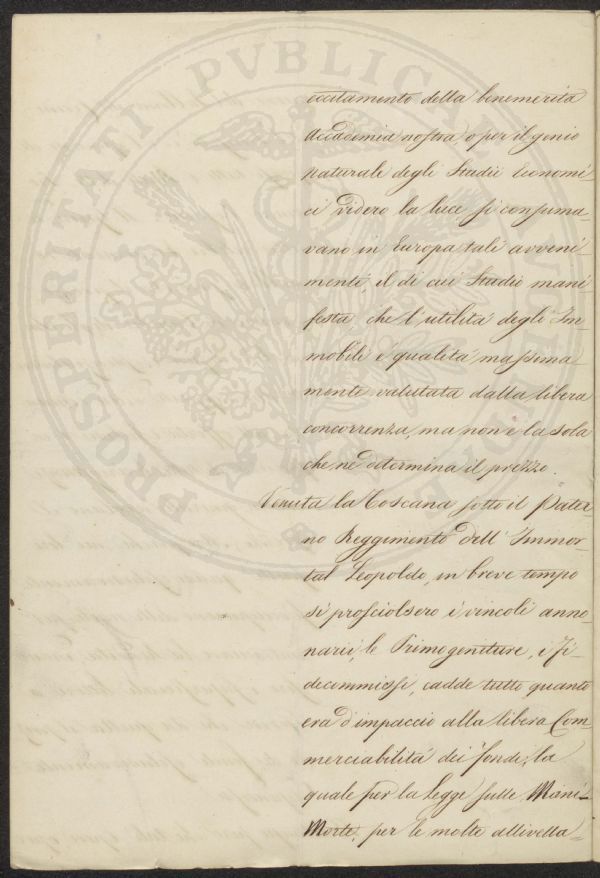 PROSPERITATI PVBLICAE AVGENDAE
eccitamento della benemerita
Accademia nostra, o per il genio
naturale degli Studii Economi-
ci videro la luce, si consuma-
vano in Europa tali avveni-
menti, il di cui Studio mani
festa, che l'utilità degli Im-
mobili è qualità massima-
mente valutata dalla libera
concorrenza, ma non è la sola
che ne determina il prezzo.
Venuta la Toscana sotto il Pater
no Reggimento dell' Immor-
tal Leopoldo, in breve tempo
si prosciolsero i vincoli anno-
narii, le Primogeniture, i Fi-
decommissi, cadde tutto quanto
era d'impaccio alla libera Com
merciabilità dei fondi, la
quale per la Legge sulle Mani-
Morte, per le molte allivella-